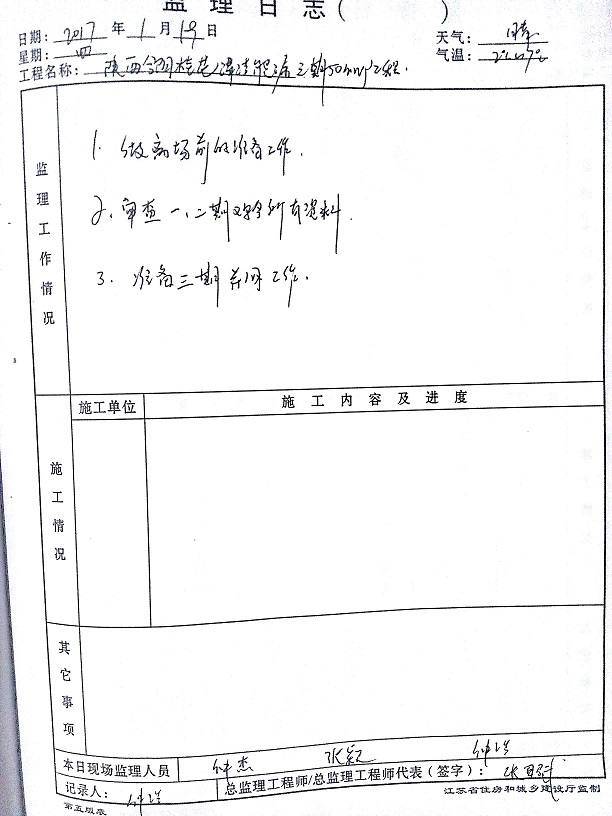 监理日志( )
日期: 2017 年 1 月 19 日 天气: 晴
星期: 四 气温:
工程名称: 陕西 三期50MWp工程.
监理工作情况
1. 做离场前的准备工作.
2、审查一、二期 所有资料.
3. 准备三期并网工作.
施工单位 施工内容及进度
施工情况
其它事项
本日现场监理人员 钟杰 张颖 钟浩
记录人: 钟浩 总监理工程师/总监理工程师代表(签字):
第五版表 江苏省住房和城乡建设厅监制